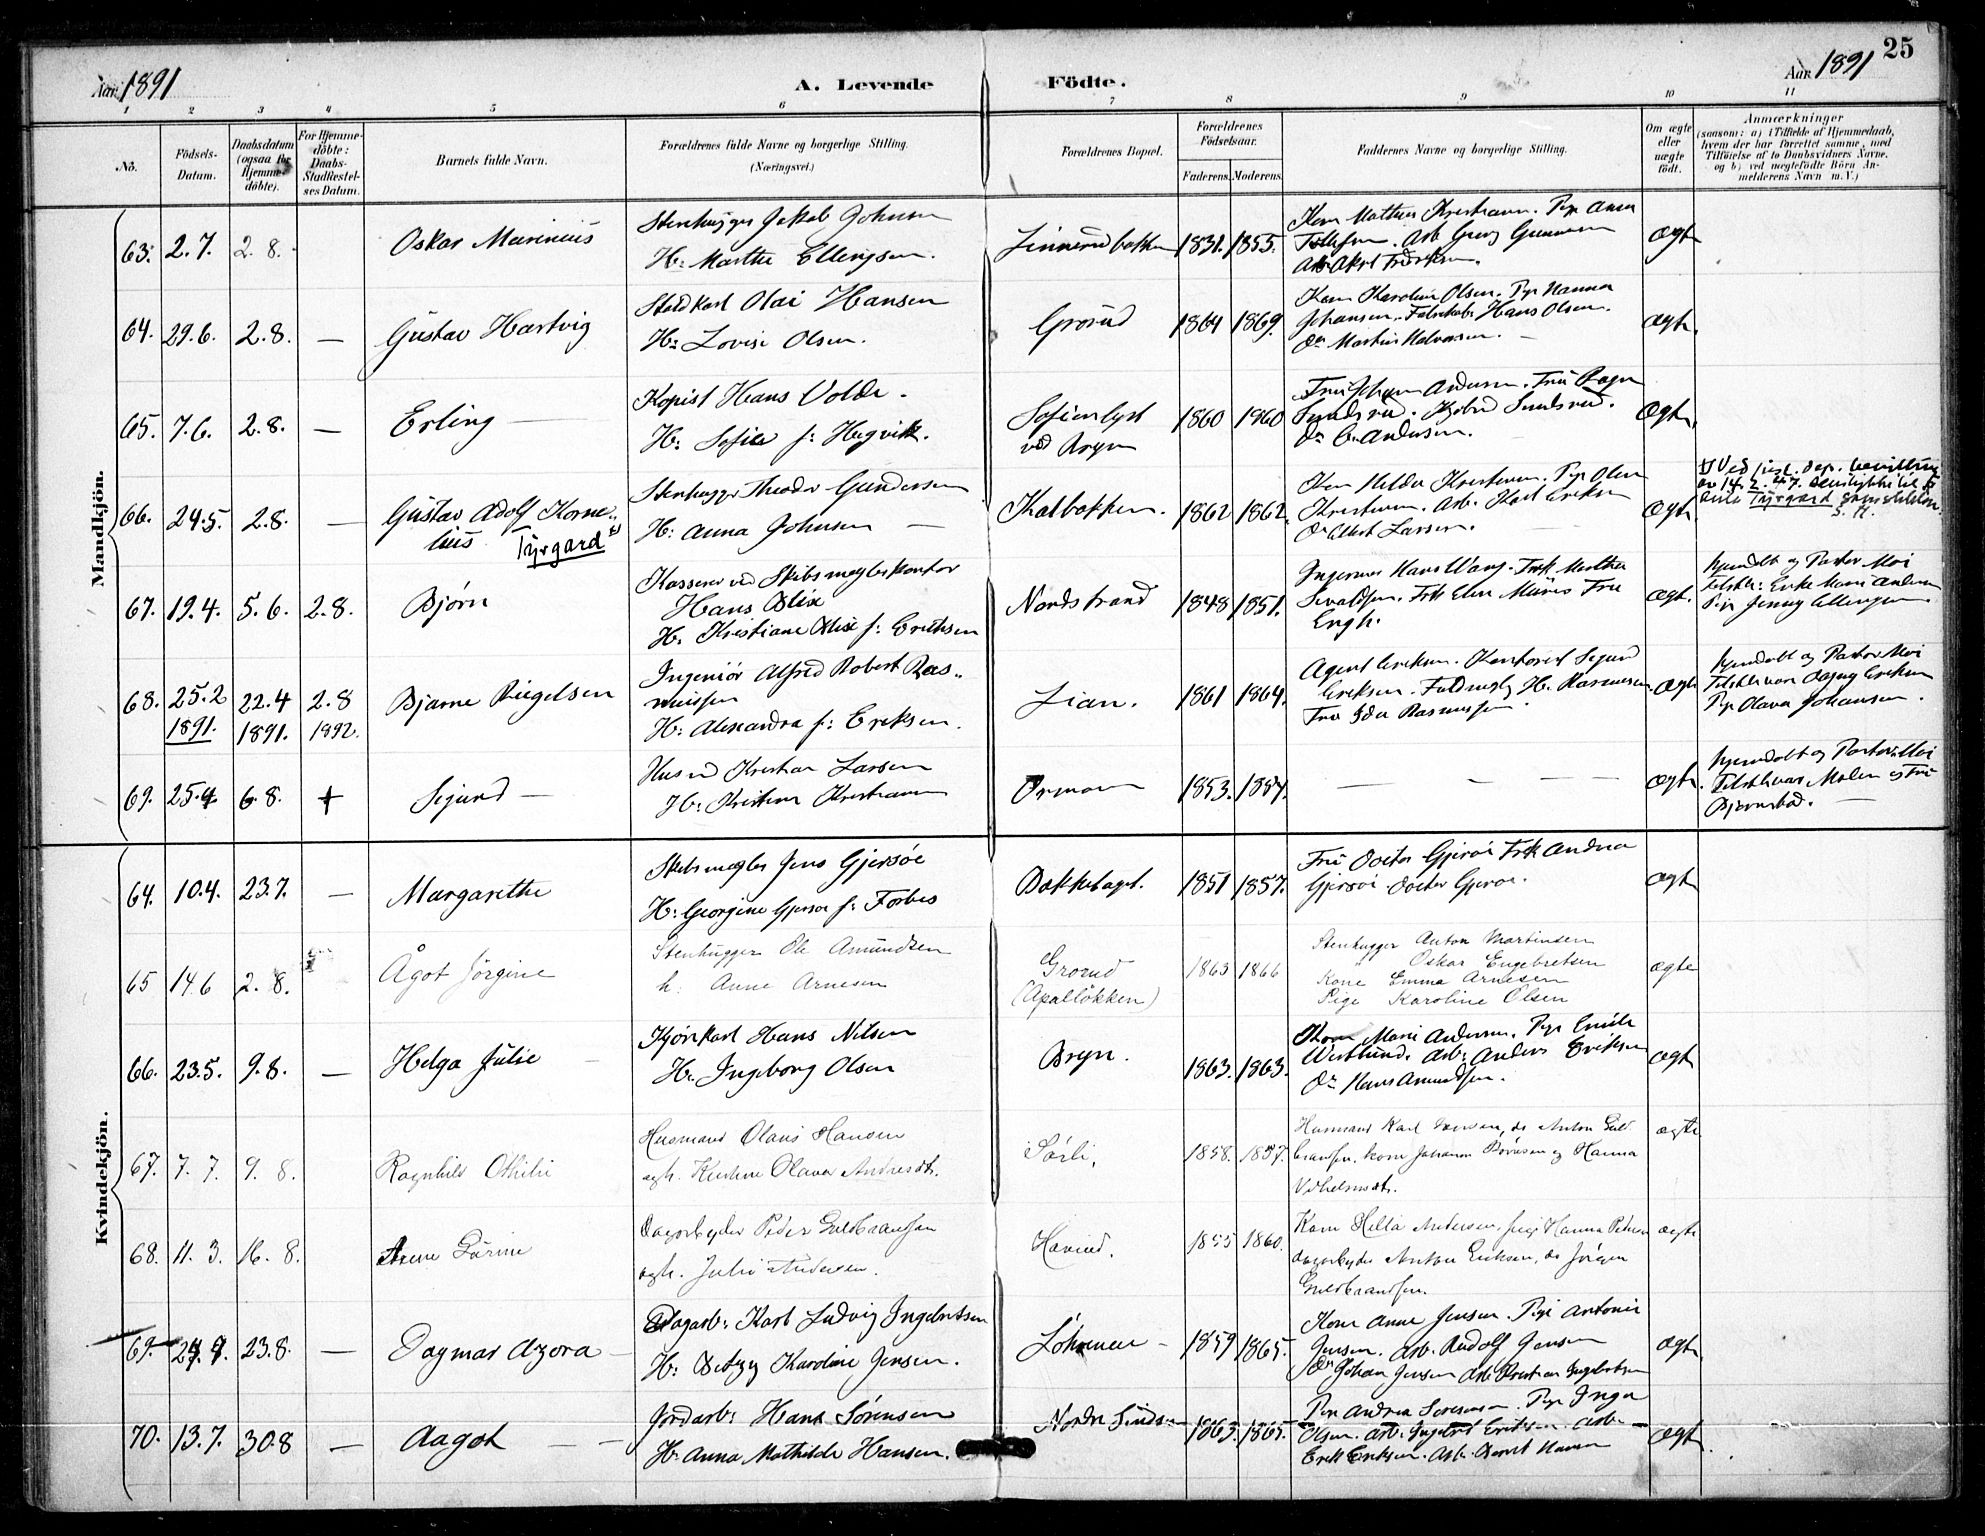 25
Aar 1891 A. Levende Födte. Aar 1891
1 2 3 4 5 6 7 8 9 10 11
No.
Födsels-
Datum.
Daabsdatum
(ogsaa for
Hjemme-
döbte).
For Hjemme-
döbte:
Daabs-
Stadfæstel-
ses Datum.
Barnets fulde Navn.
Forældrenes fulde Navne og borgerlige Stilling.
(Næringsvei.)
Forældrenes Bopæl.
Forældrenes
Födselsaar.
Faderens. Moderens.
Faddernes Navne og borgerlige Stilling.
Om ægte
eller
uægte
födt.
Anmærkninger
(saasom: a) i Tilfælde af Hjemmedaab,
hvem der har forrettet samme, med
Tilföielse af to Daabsvidners Navne,
og b) ved uægtefödte Börn An-
melderens Navn m. V.)
Mandkjön.
63. 2.7. 2.8. Oskar Marinius
Stenhugger Jakob Johnsen
H: Marthe Ellingsen.
Linnerudbakken 1831. 1855.
ægte
64. 29.6. 2.8. — Gustav Hartvig
Staldkarl Olai Hansen
H: Lovise Olsen.
Grorud 1864 1869.
Kone Karoline Olsen. Pige Hanna
Johansen. Fabrikarb. Hans Olsen.
Do Martin Halvorsen.
ægte.
65. 7.6. 2.8. — Erling —
Kopist Hans Volde.
H: Sofie f: Hegvik.
Sofienlyst
ved Bryn
1860 1860
Do C. Andersen.
Ægte.
66. 24.5. 2.8. — Gustav Adolf Korne-
lius Tyrgard x)
Stenhugger Theodor Gundersen
H: Anna Johnsen —
Kalbakken. 1862 1862.
Do Albert Larsen.
Ægte.
x) Ved just. dep. bevilling
av 14.2.47.
Tyrgard som slektsn.
S. H.
67. 19.4. 5.6. 2.8. Bjørn
Kasserer ved Skibsmæglerkontor
Hans Blix
H: Kristiane Blix f: Eriksen
Nordstrand 1848 1851.
Engh.
Ægt.
hjemdøbt og Pastor Moi
Pige Jenny Ellingsen.
68. 25.2
1891. 22.4
1891. 2.8
1892. Bjarne Riegelsen
Ingeniör Alfred Robert Ras-
mussen
H: Alexandra f: Eriksen.
Lian. 1861 1864.
Agent Eriksen. Kontorist Sigurd
Eriksen. H. Rasmussen
Fru Ida Rasmussen.
Ægte
hjemdøbt og Pastor Moi
Pige Olava Johansen.
69. 25.4. 6.8. + Sigurd —
Kristian Larsen
H: Kristine Kristiansen
1853. 1854.
— — — —
Ægte.
hjemdøbt og Pastor Moi
Bjørnstad. —
Kvindekjön.
64. 10.4. 23.7. — Margarethe
Skibsmægler Jens Gjersøe
H: Georgine Gjersøe f: Forbes
Bækkelaget. 1851 1857.
Fru Doctor Gjersøe Frk Andrea
Gjersøe. Doctor Gjersøe.
ægte
65 14.6 2.8. Ågot Jörgine
Stenhugger Ole Amundsen
h. Anne Arnesen
Grorud
(Apalløkken)
1863 1866
Stenhugger Anton Martinsen
" Oskar Engebretsen
Kone Emma Arnesen
Pige Karoline Olsen
ægte
66. 23.5. 9.8. — Helga Julie
Kjörekarl Hans Nilsen
H: Ingeborg Olsen
Bryn. 1863. 1863.
Kone Marie Andersen. Pige Emilie
Westlund. Arb: Anders Eriksen
Do Hans Amundsen.
ægte
67. 7.7. 9.8. Ragnhild Othilie
Husmand Olaus Hansen
ægt. Kirstine Olava Andresdt.
Sørli. 1858. 1857.
Husmand Karl Iversen, do Anton Guld
brandsen, kone Johanne Sørensen og Hanna
Vilhelmsdt.
ægte
68. 11.3. 16.8. Anne Laurine
Dagarbeyder Peder Guldbrandsen
ægt. Julie Andersen.
1855 1860.
Kone Helle Andersen, pige Hanna Pedersen
dagarbeyder Anton Eriksen, do Jörgen
Guldbrandsen.
ægte
69. 29.7. 23.8. — Dagmar Azora —
Dagarb: Karl Ludvig Ingebretsen
H: Betzy Karoline Jensen.
1859 1865.
Kone Anne Jensen. Pige Antonie
Jensen. Arb. Rudolf Jensen
Do Johan Jensen Arb Kristian Ingebretsen
ægte.
70. 13.7. 30.8 — Aagot —
Jordarb: Hans Sørensen
H: Anna Mathilde Hansen.
Nordre 1863. 1865.
Pige Andrea Sørensen. Pige Inga
Olsen. Arb. Ingebret Eriksen. Arb.
Erik Eriksen. Arb. Bernt Hansen
Ægte.